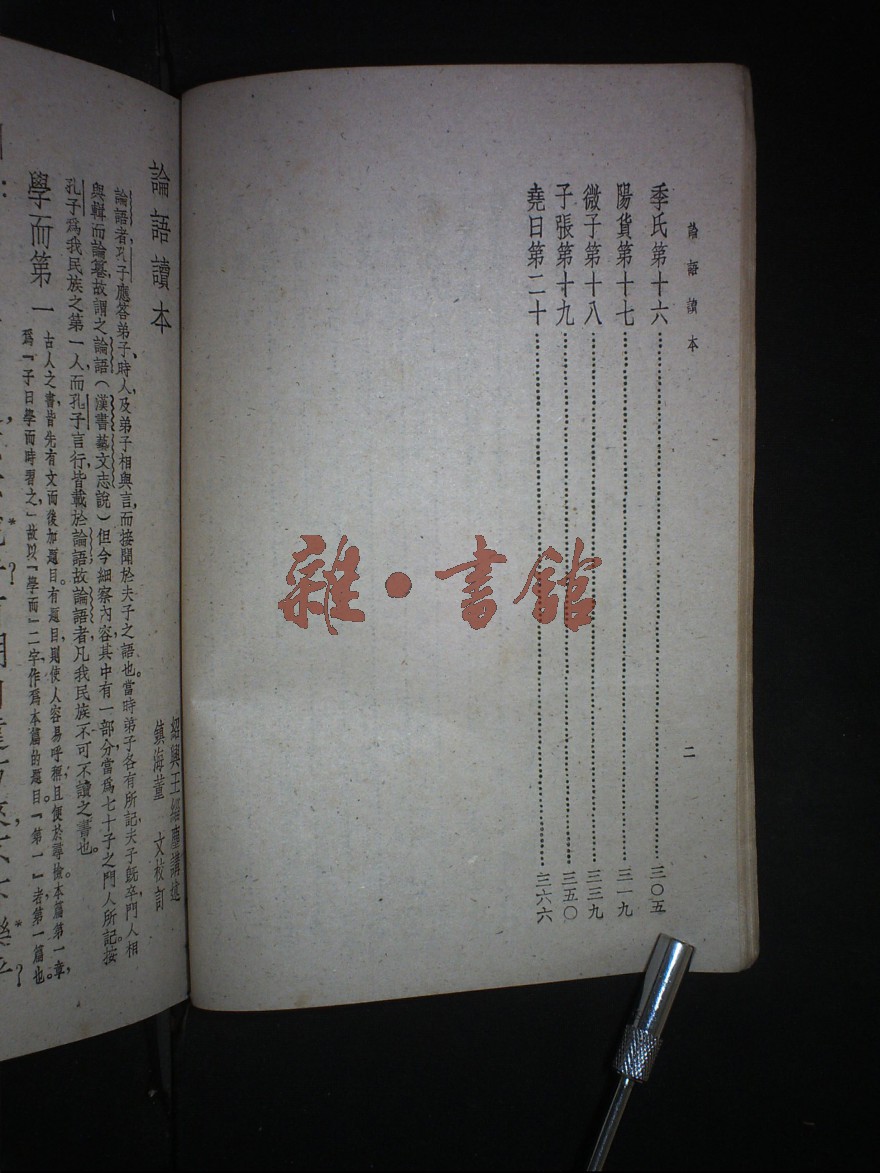 論語讀本
季氏第十六……三〇五
陽貨第十七……三一九
微子第十八……三三九
子張第十九……三五〇
堯曰第二十……三六六
二
雜·書館
論語讀本
紹興王緇塵講述
鎮海董文校訂
論語者孔子應答弟子、時人、及弟子相與言，而接聞於夫子之語也。當時弟子各有所記，夫子旣卒，門人相
與輯而論篹，故謂之論語（漢書藝文志說）但今細察內容，其中有一部分，當爲七十子之門人所記。按
孔子爲我民族之第一人，而孔子言行，皆載於論語，故論語者，凡我民族不可不讀之書也。
學而第一
古人之書，皆先有文而後加題目。有題目，則使人容易呼稱，且便於尋檢。本篇第一章，
爲「子曰學而時習之」故以「學而」二字作爲本篇的題目。「第一」者，第一篇也。